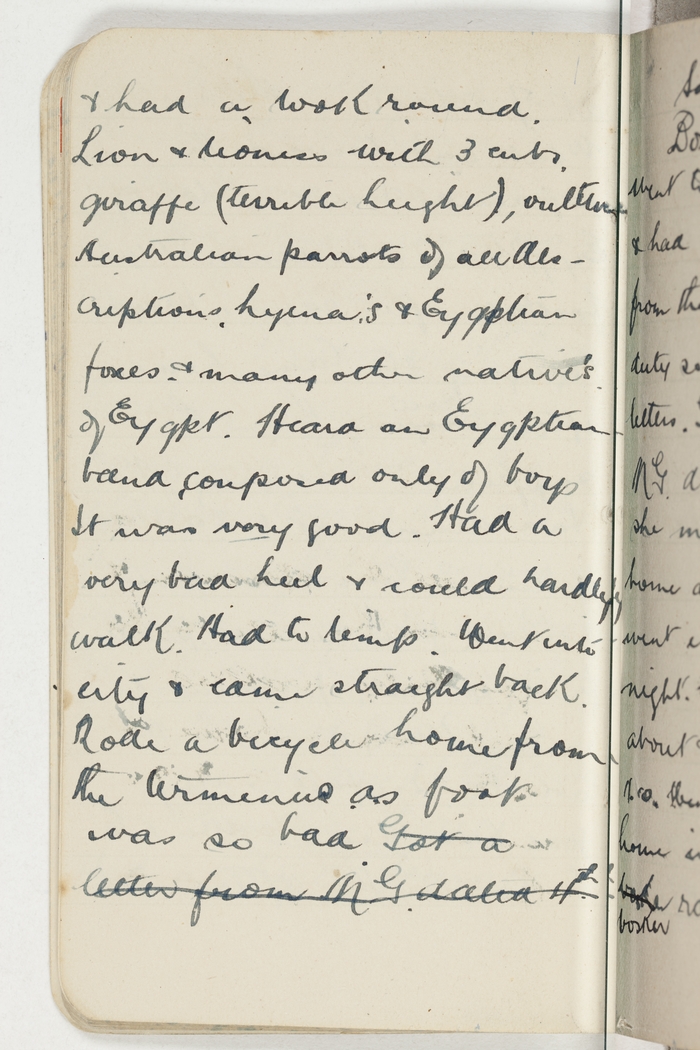 & had a look round.
Lion & lioness with 3 cubs,
giraffe (terrible height), vultures
Australian parrots of all des-
criptions, hyena's & Eygptian
foxes & many other native's
of Eygpt. Heard an Eygptian
band composed only of boys
It was very good. Had a
very bad heel & could hardly
walk. Had to limp. Went into
city & came straight back.
Rode a bicycle home from
the terminus as foot
was so bad Got a
letter from NG dated 11th
So
Bo
went
& had
from the
duty
letters.
NG.
she m
home a
went
night.
about
home
bosker